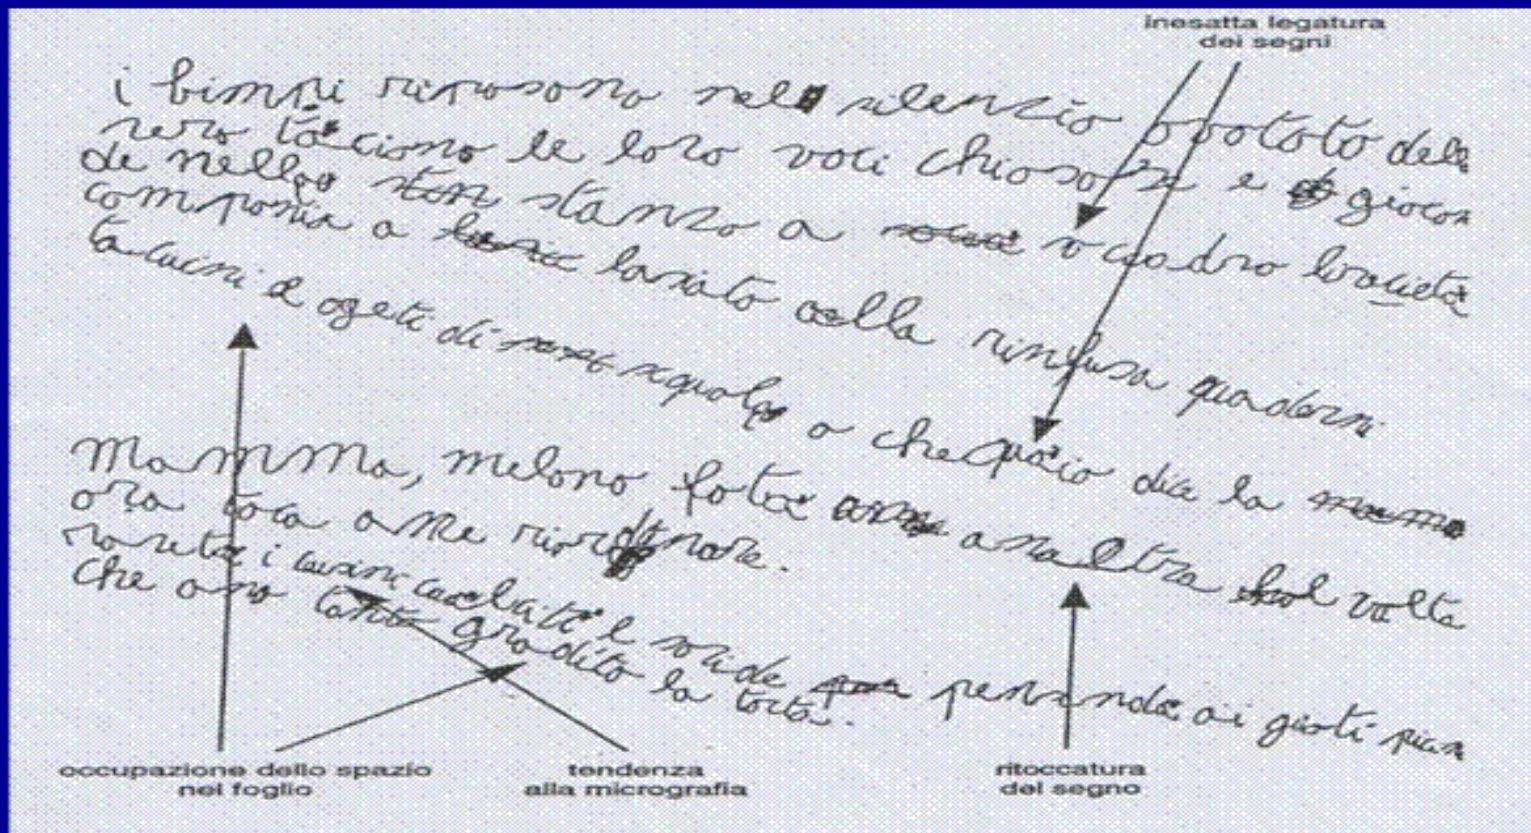 inesatta legatura
dei segni
i bimbi riposono nel silenzio ovatato della
sero tacciono le loro voci chiosose e giocon
de nella stanzo a soquadro
componia a lasiato alla rinfusa quaderni
tacuini e ogeti di squola a che guaio dice la
Mamma, melono fota analtra volta
ora toca ame riordinare.
i cusini e soride pensando ai gusti
che ano tanto gradito la torta.
occupazione dello spazio
nel foglio
tendenza
alla micrografia
ritoccatura
del segno